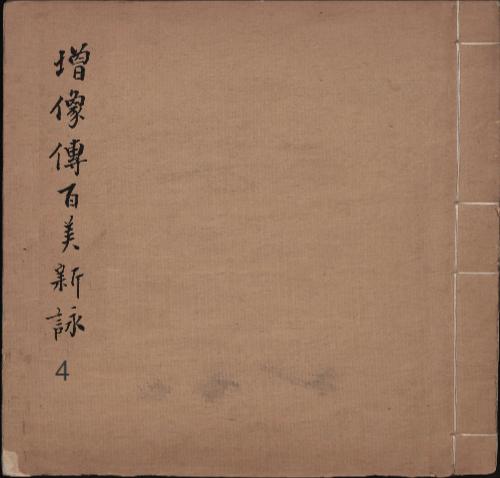 增像傳百美新詠
4